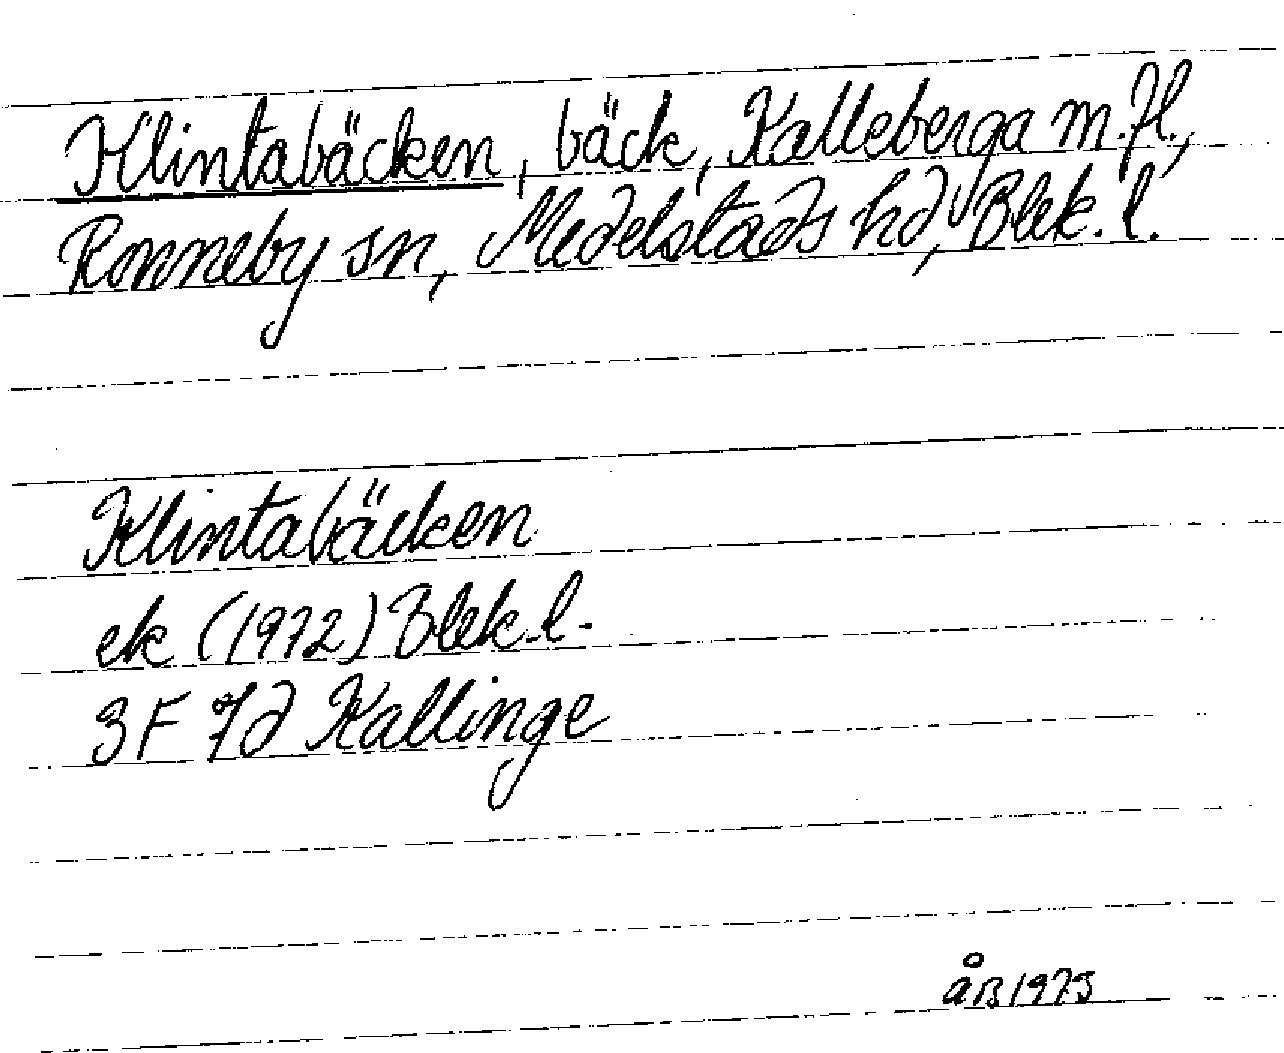 Klintabäcken, bäck, Kalleberga m.fl.,
Ronneby sn, Medelstads hd, Blek. l.
Klintabäcken
ek (1972) Blek. l.
3F 7d Kallinge
åB 1975